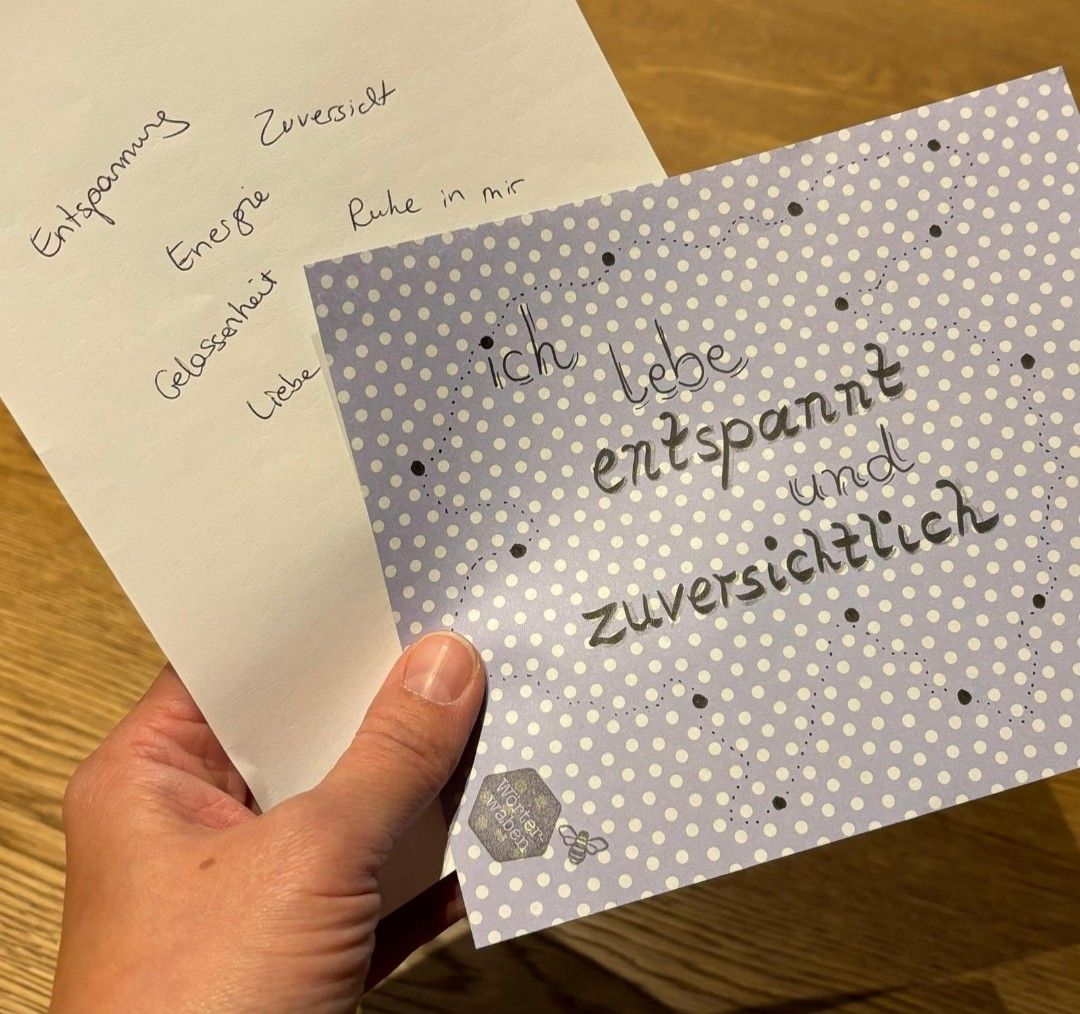 Entspannung
Zuversicht
Energie
Ruhe in mir
Gelassenheit
Liebe
ich lebe
entspannt
und
zuversichtlich
Wörter
waben